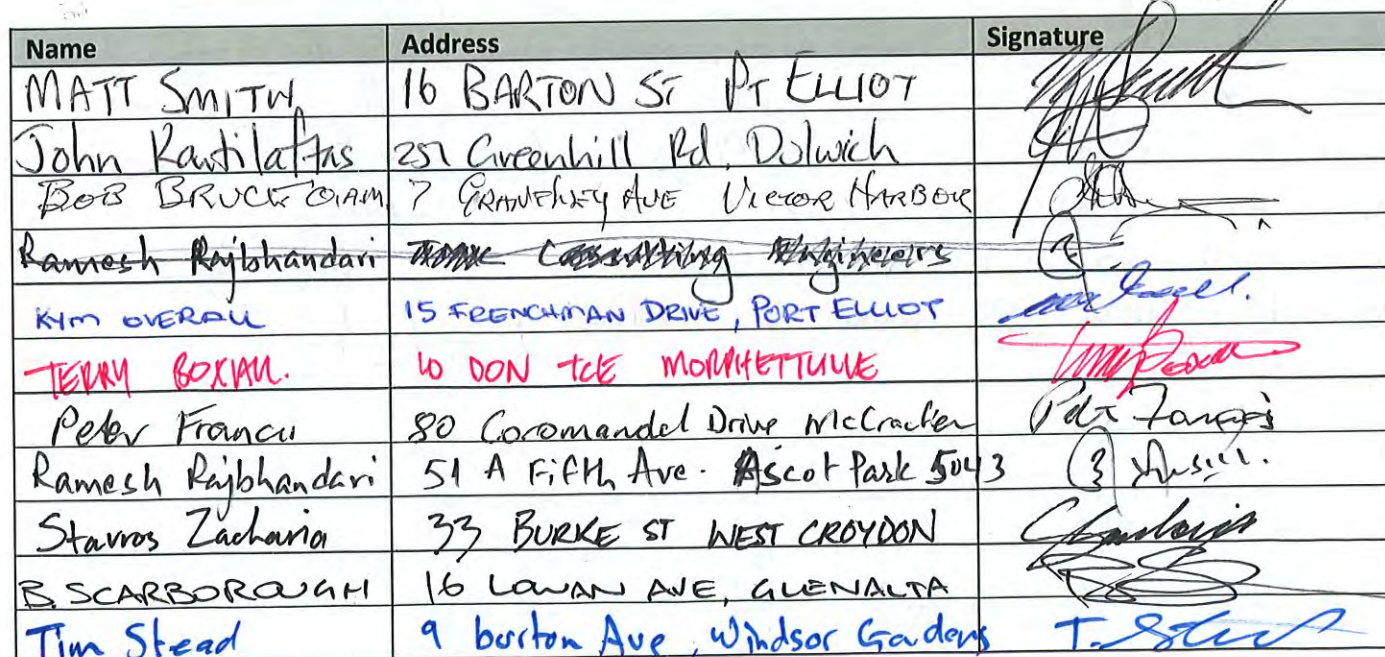 Name Address Signature
MATT SMITH 16 BARTON ST PT ELLIOT
John 251 Greenhill Rd, Dulwich
BOB 7 AVE VICTOR HARBOR
Ramesh Rajbhandari Consulting Engineers
KYM OVERALL 15 FRENCHMAN DRIVE, PORT ELLIOT
TERRY BOXALL. 10 DON TCE MORPHETTVILLE
Peter Francis 80 Coromandel Drive McCracken
Ramesh Rajbhandari 51 A Fifth Ave. Ascot Park 5043
Stavros Zacharia 33 BURKE ST WEST CROYDON
B. SCARBOROUGH 16 LOWAN AVE, GLENALTA
Tim Stead 9 burton Ave, Windsor Gardens T. Stead